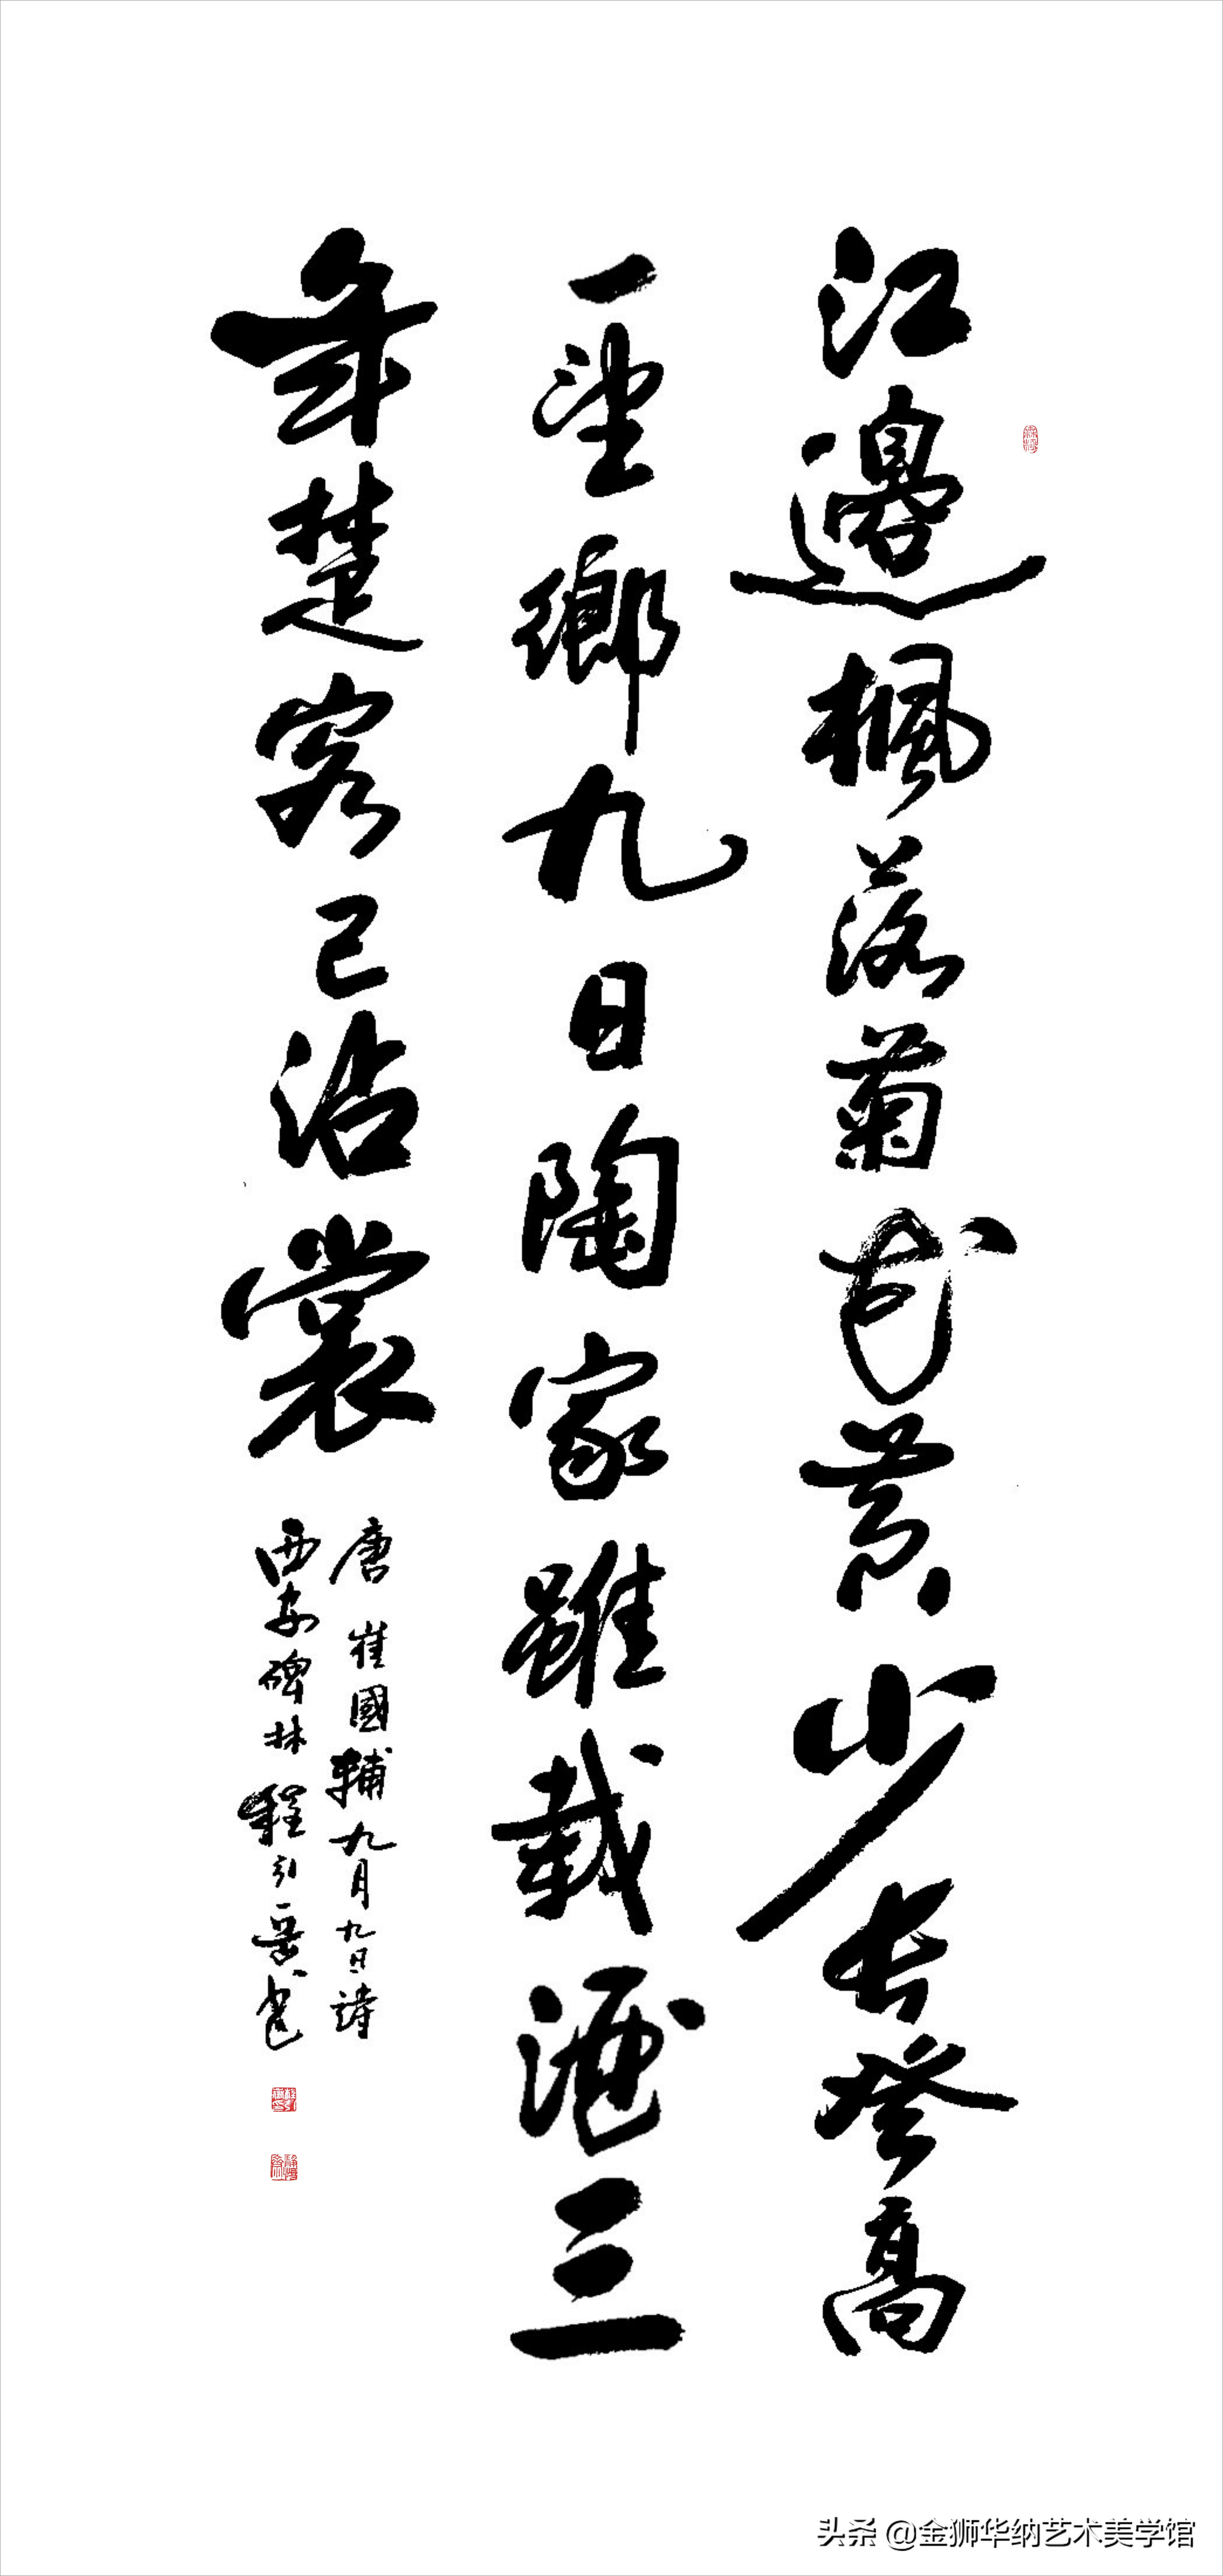 江邊楓落菊花黄少長登高
一望鄉九日陶家雖載酒三
年楚客已沾裳
唐崔國輔九月九日詩
西安碑林程引
头条 @金狮华纳艺术美学馆